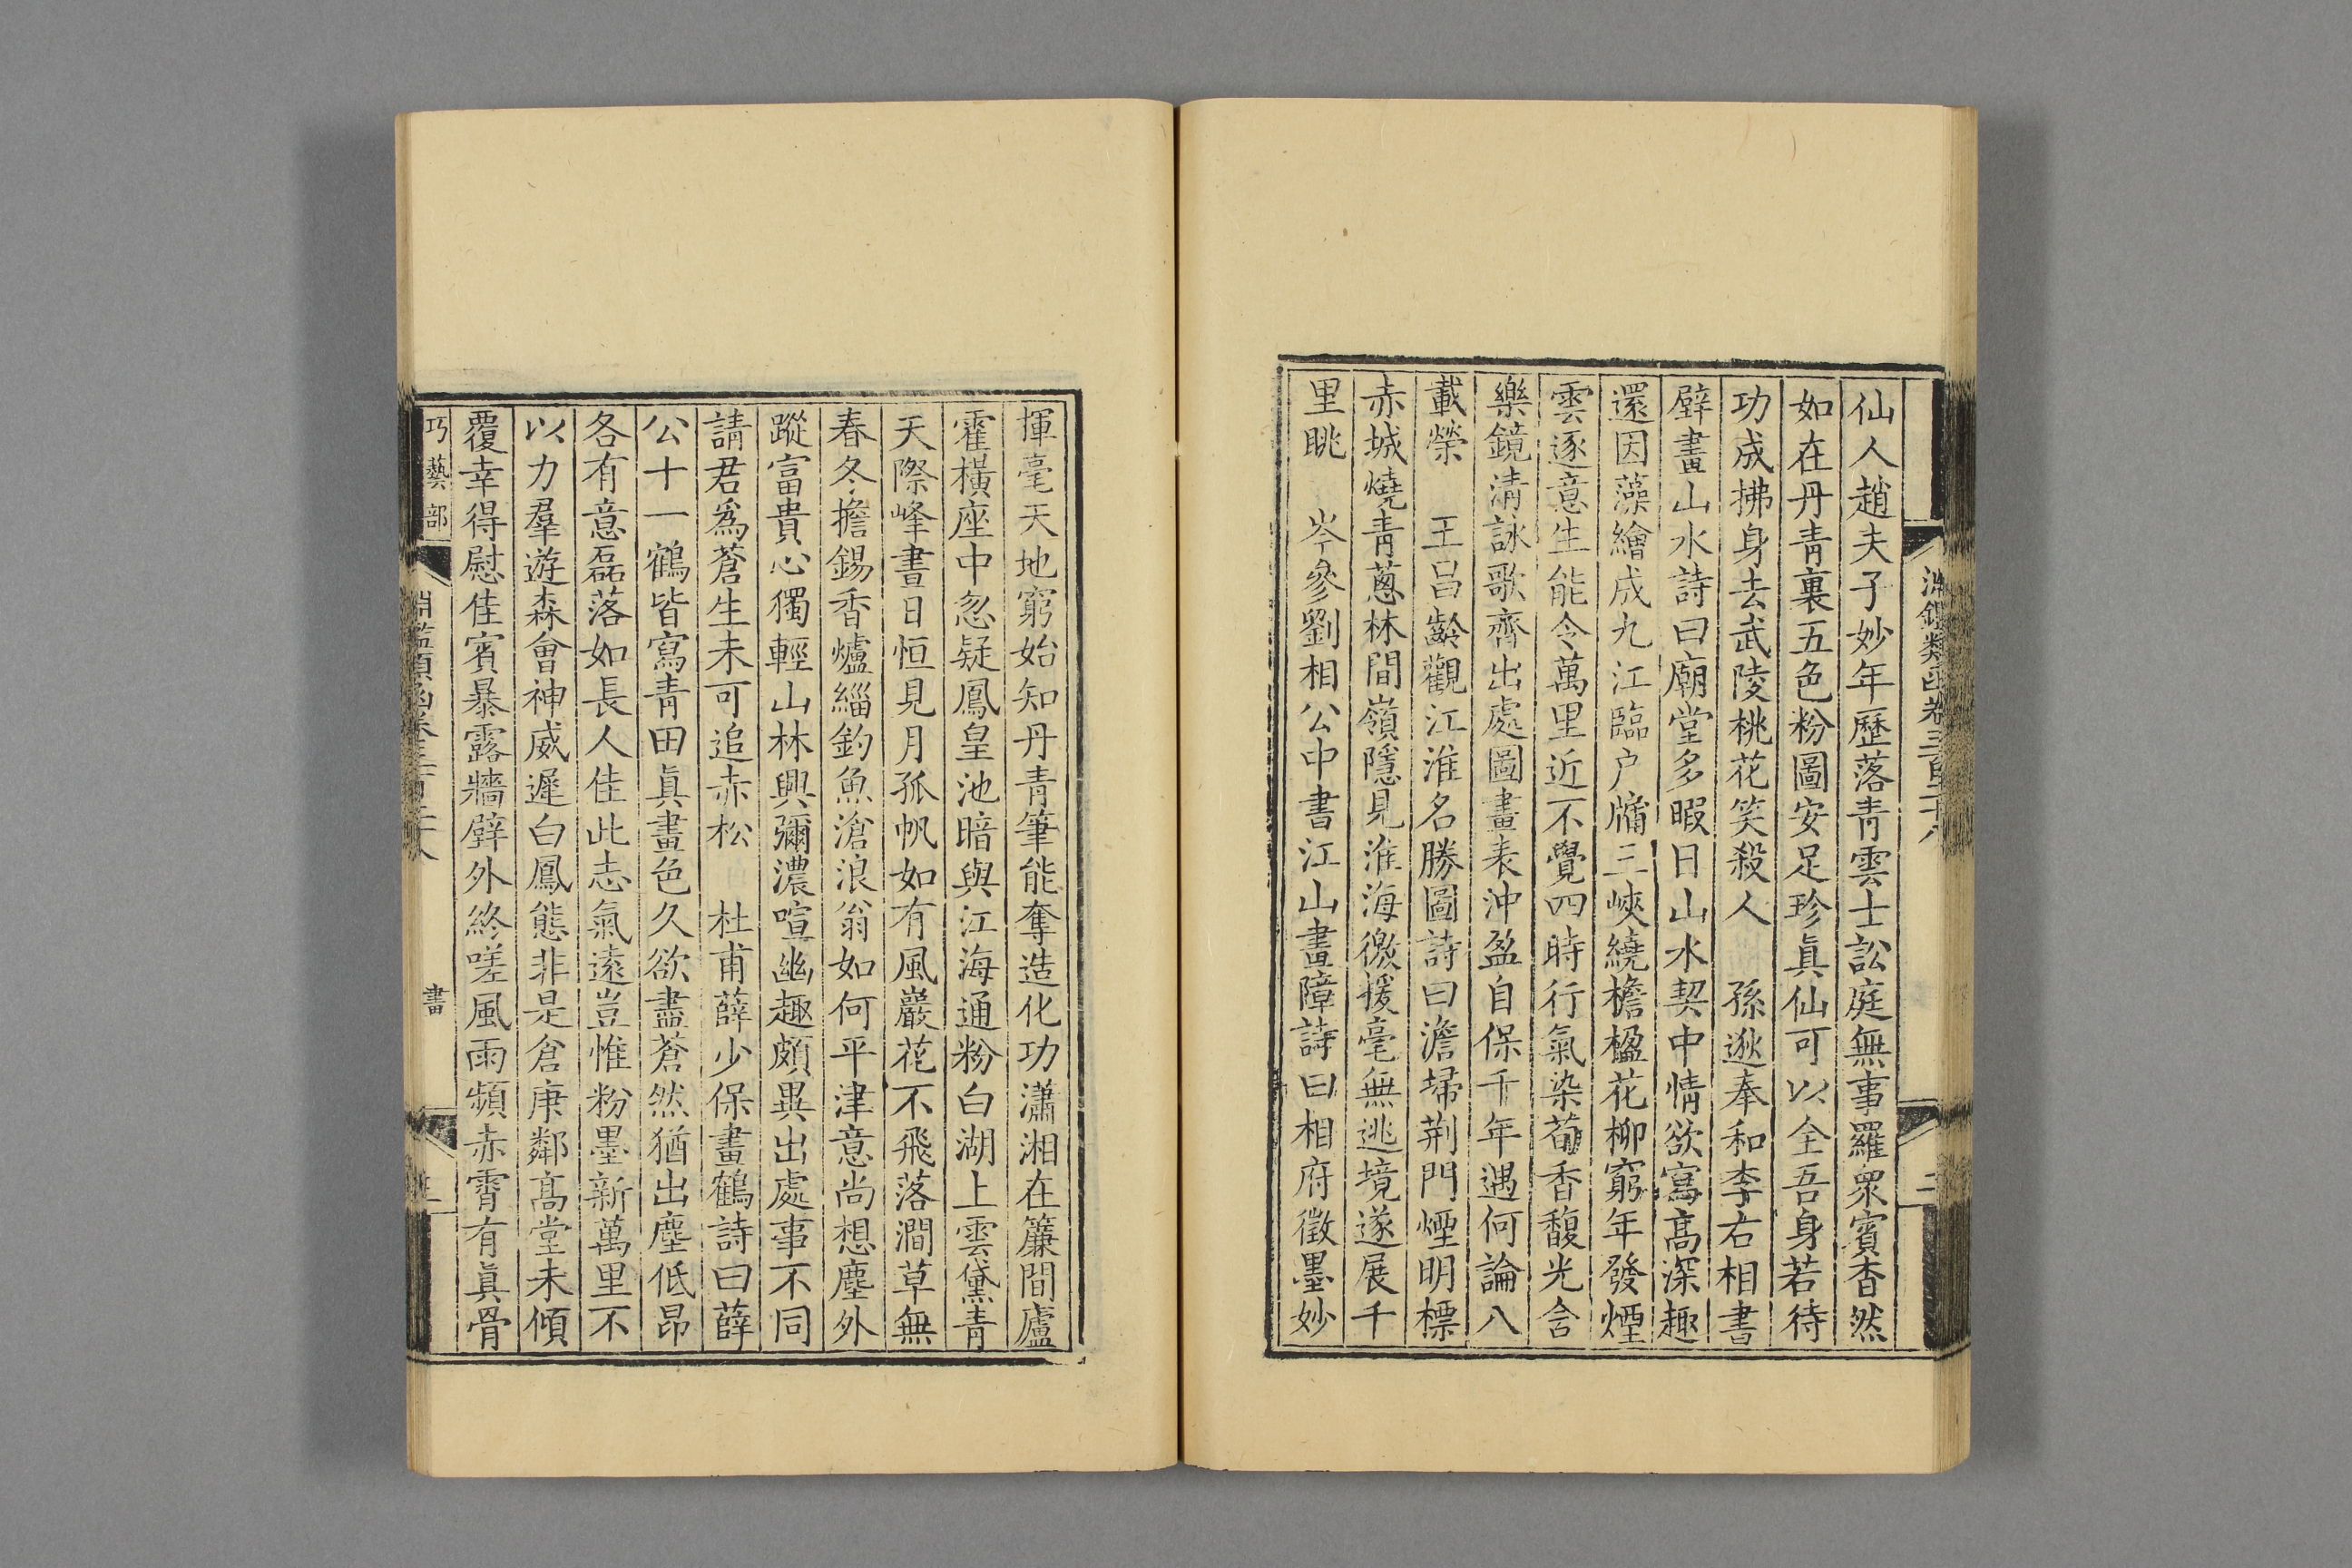 仙人趙夫子妙年歷落青雲士訟庭無事羅衆賓杳然
如在丹青裏五色粉圖安足珍眞仙可以全吾身若待
功成拂身去武陵桃花笑殺人　孫逖奉和李右相書
壁畫山水詩曰廟堂多暇日山水契中情欲寫高深趣
還因藻繪成九江臨户牖三峽繞檐楹花柳窮年發煙
雲逐意生能令萬里近不覺四時行氣染荀香馥光含
樂鏡清詠歌齊出處圖畫表沖盈自保千年遇何論八
載榮　王昌齡觀江淮名勝圖詩曰澹埽荆門煙明標
赤城燒青蔥林間嶺隱見淮海徼援毫無逃境遂展千
里眺　岑參劉相公中書江山畫障詩曰相府徵墨妙
揮毫天地窮始知丹青筆能奪造化功瀟湘在簾間廬
霍橫座中忽疑鳳皇池暗與江海通粉白湖上雲黛青
天際峰晝日恒見月孤帆如有風巖花不飛落澗草無
春冬擔錫香爐緇釣魚滄浪翁如何平津意尚想塵外
蹤富貴心獨輕山林興彌濃喧幽趣頗異出處事不同
請君爲蒼生未可追赤松　杜甫薛少保畫鶴詩曰薛
公十一鶴皆寫青田眞畫色久欲盡蒼然猶出塵低昂
各有意磊落如長人佳此志氣遠豈惟粉墨新萬里不
以力羣遊森會神威遲白鳳態非是倉庚鄰高堂未傾
覆幸得慰佳賓暴露牆壁外終嗟風雨頻赤霄有眞骨
巧藝部　淵鑑類函卷三百二十八　畫